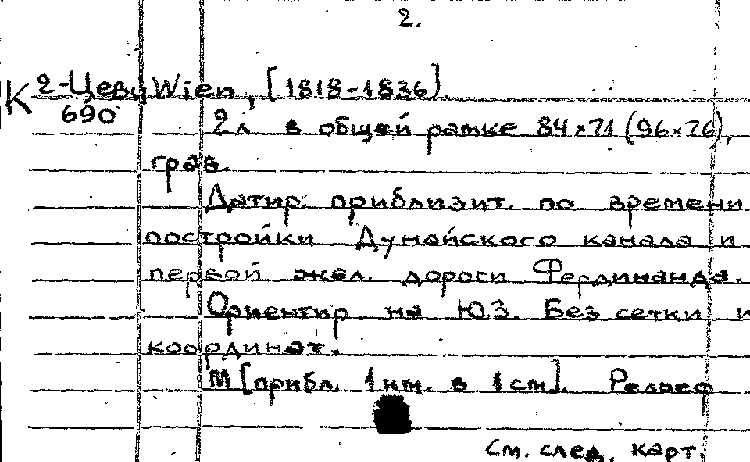 2.
К 2-ЦевиWien, [1818-1836].
690
2л в общей рамке 84×71 (96×76),
грав.
Датир. приблизит. по времени
постройки Дунайского канала и
первой жел. дороги Фердинанда.
Ориентир на ЮЗ. Без сетки и
координат.
М [прибл. 1 км. в 1 см]. Рельеф
См. след. карт.